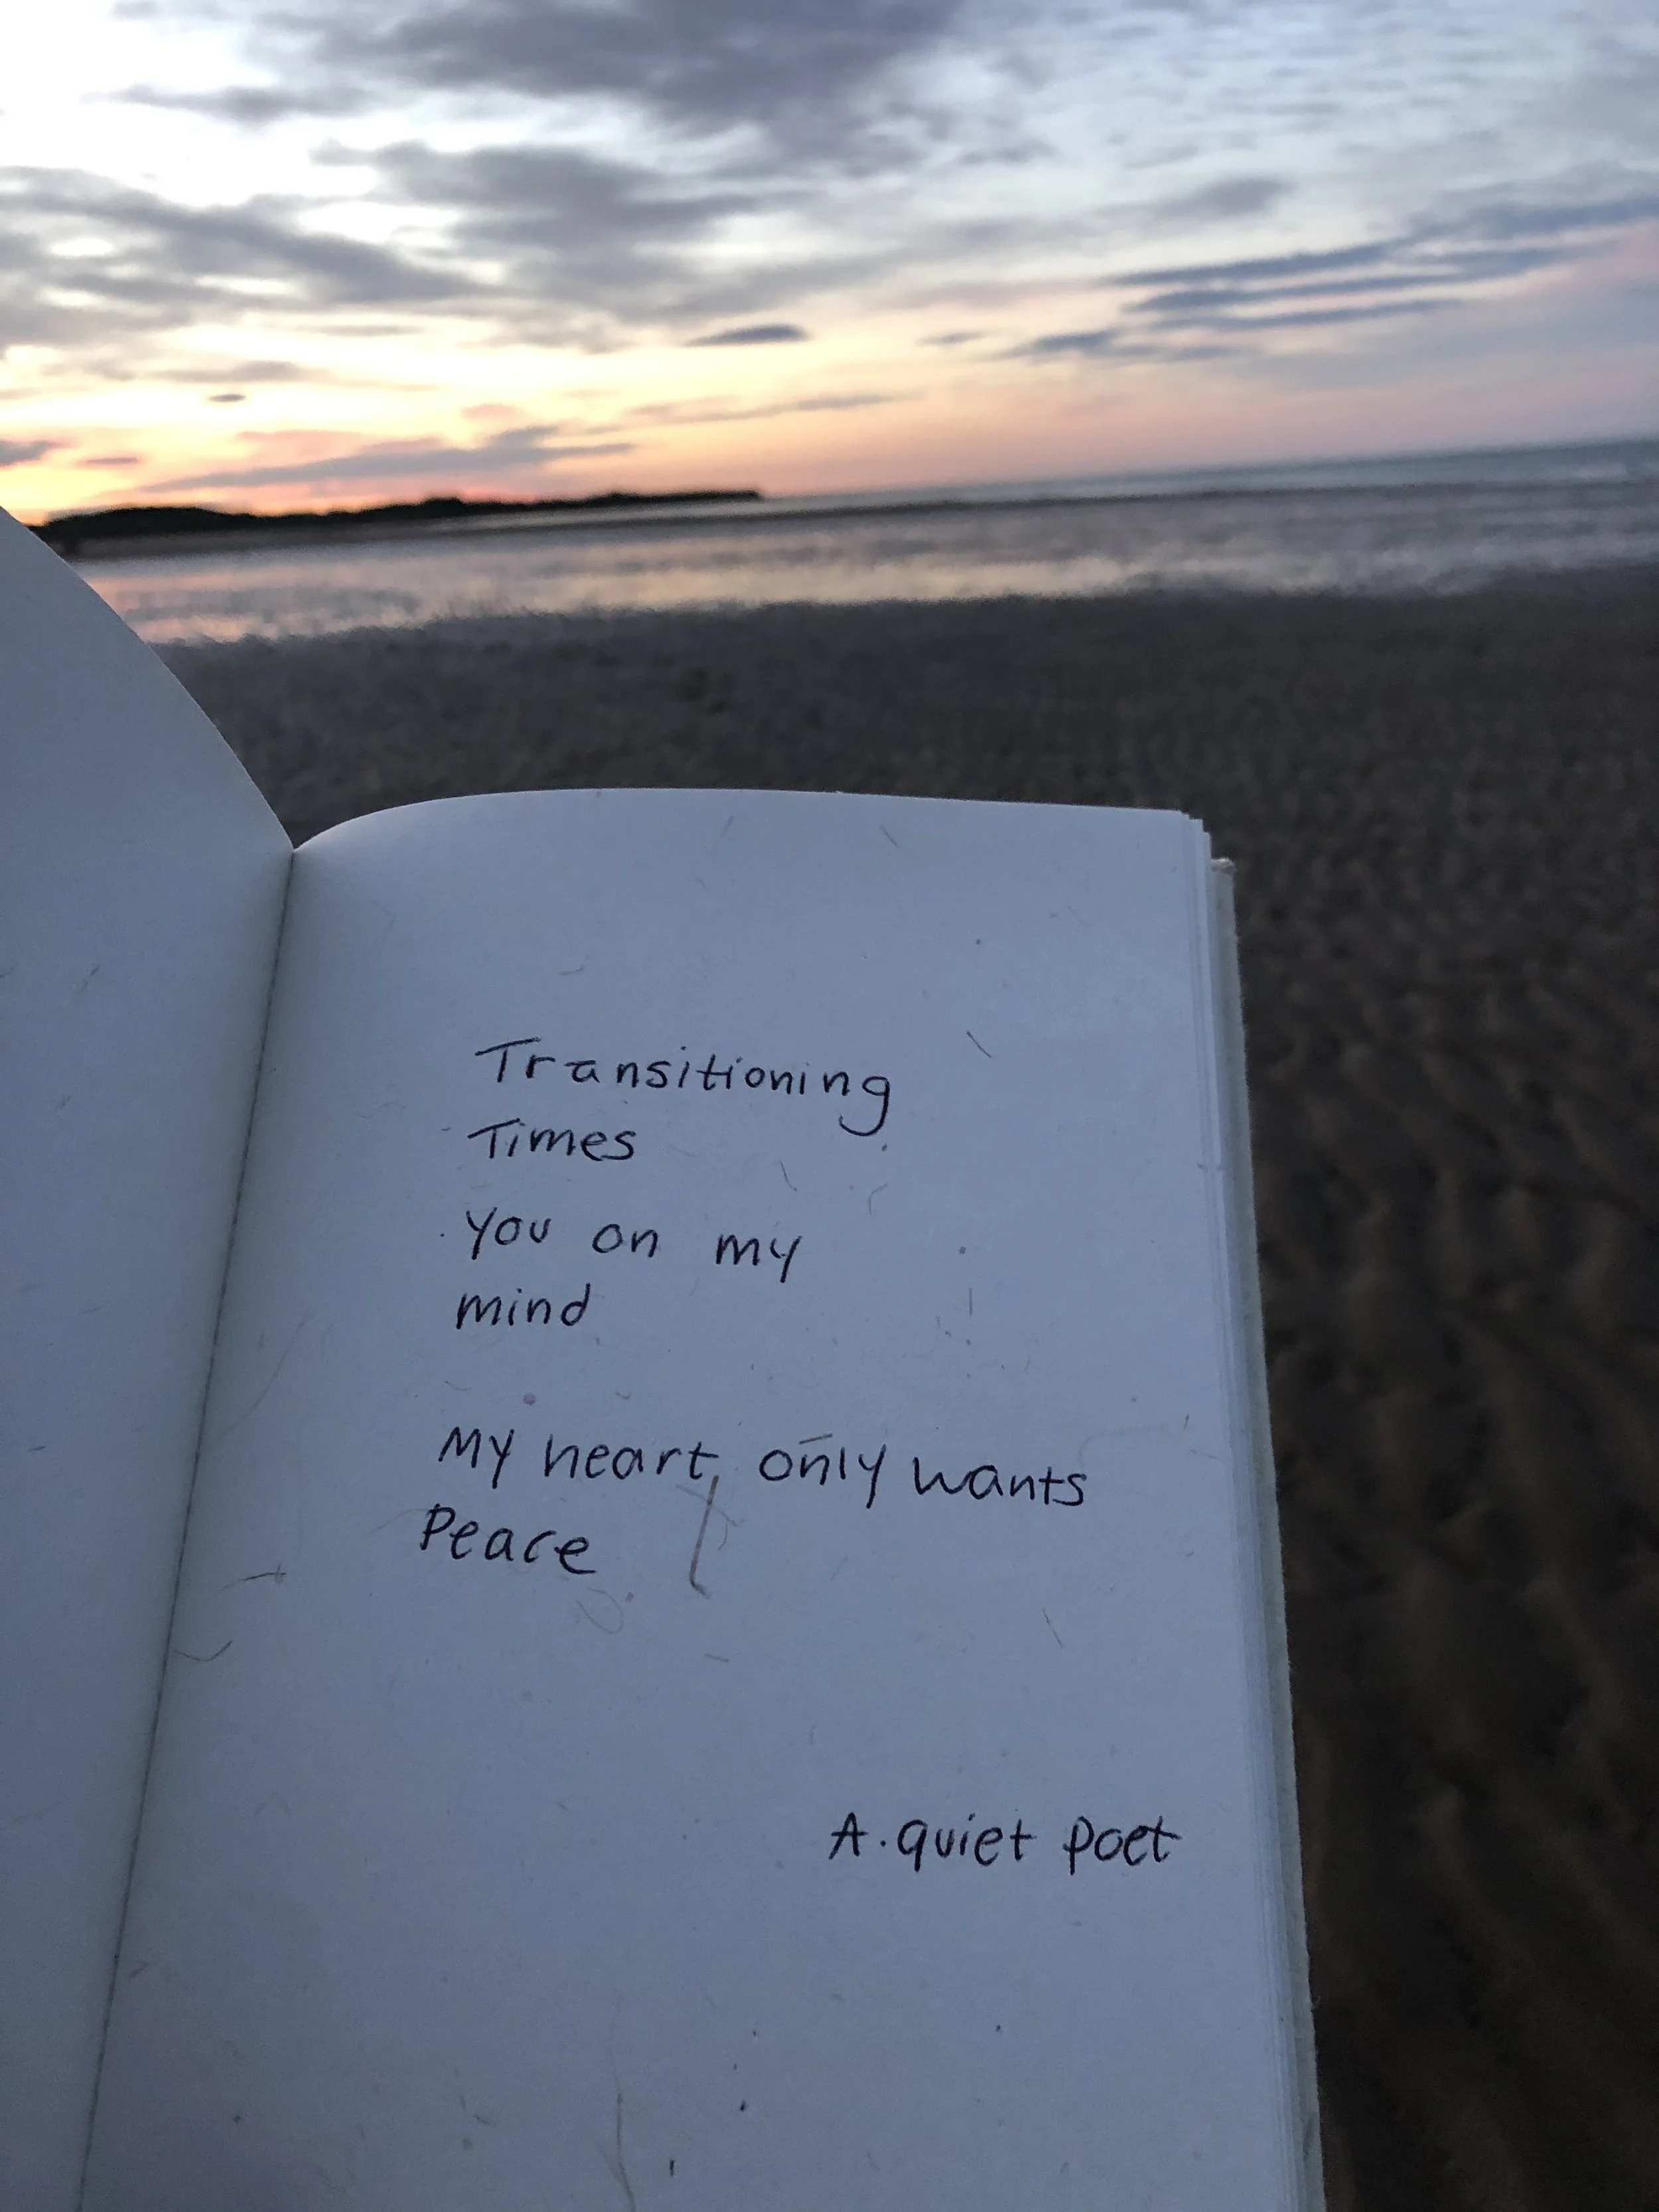 Transitioning
Times
you on my
mind
My heart, only wants
Peace
A. quiet poet